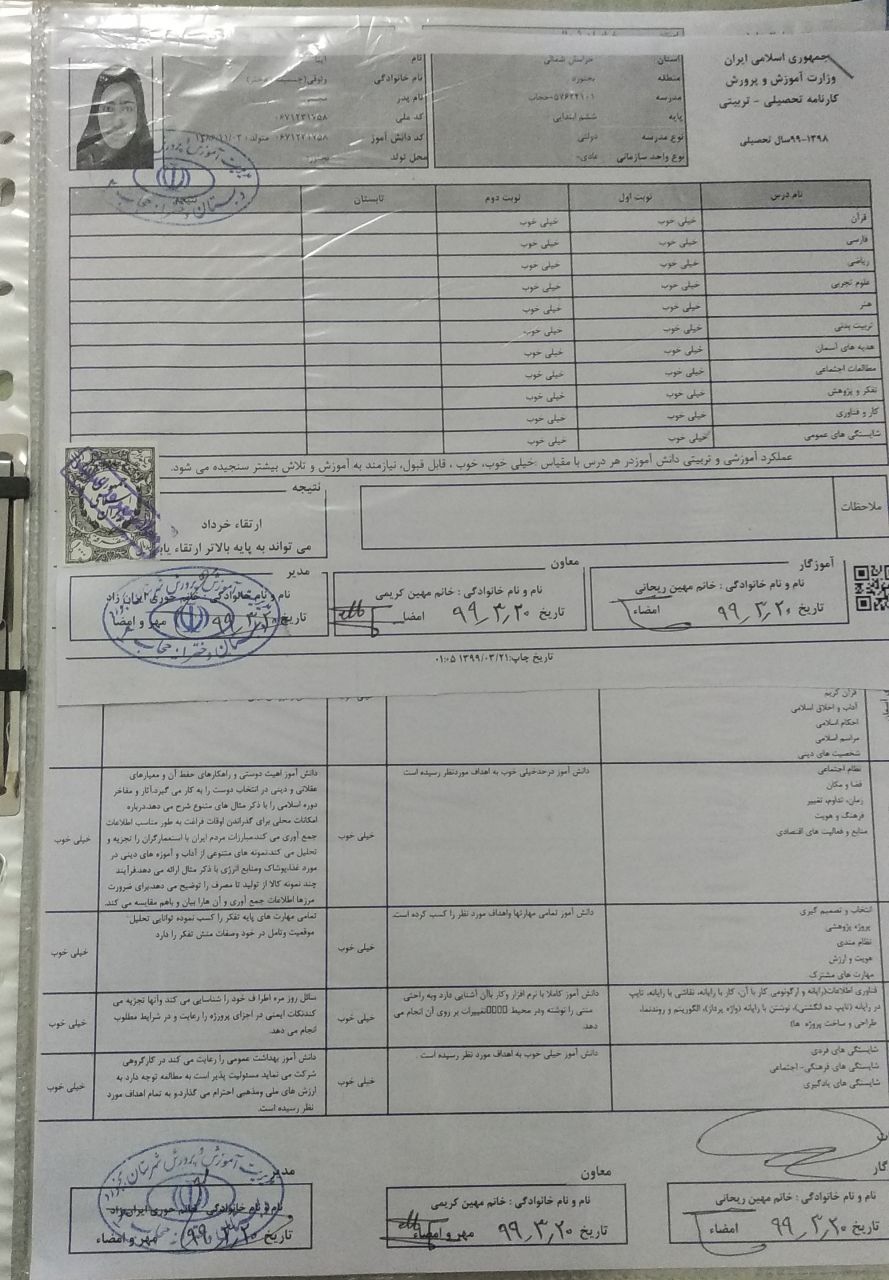 جمهوری اسلامی ایران
وزارت آموزش و پرورش
کارنامه تحصیلی - تربیتی
۱۳۹۸-۹۹سال تحصیلی
استان خراسان شمالی
منطقه بجنورد
مدرسه ۵۷۶۲۴۱۰۱-حجاب
پایه ششم ابتدایی
نوع مدرسه دولتی
نوع واحد سازمانی عادی-
نام
نام خانوادگی
نام پدر
کد ملی
کد دانش آموز
محل تولد
نام درس نوبت اول نوبت دوم تابستان
قرآن خیلی خوب خیلی خوب
فارسی خیلی خوب خیلی خوب
ریاضی خیلی خوب خیلی خوب
علوم تجربی خیلی خوب خیلی خوب
هنر خیلی خوب خیلی خوب
تربیت بدنی خیلی خوب خیلی خوب
هدیه های آسمان خیلی خوب خیلی خوب
مطالعات اجتماعی خیلی خوب خیلی خوب
تفکر و پژوهش خیلی خوب خیلی خوب
کار و فناوری خیلی خوب خیلی خوب
شایستگی های عمومی خیلی خوب خیلی خوب
عملکرد آموزشی و تربیتی دانش آموزدر هر درس با مقیاس خیلی خوب، خوب ، قابل قبول، نیازمند به آموزش و تلاش بیشتر سنجیده می شود.
ملاحظات
نتیجه
ارتقاء خرداد
می تواند به پایه بالاتر ارتقاء یابد
آموزگار
نام و نام خانوادگی : خانم مهین ریحانی
تاریخ ۹۹٫۳٫۲۰ امضاء
معاون
نام و نام خانوادگی : خانم مهین کریمی
تاریخ ۹۹٫۳٫۲۰ امضا
مدیر
نام و نام خانوادگی : خانم حوری ایران زاد
تاریخ ۹۹٫۳٫۲۰ مهر و امضاء
تاریخ چاپ:۱۳۹۹/۰۳/۲۱ ۰۱:۰۵
قرآن کریم
آداب و اخلاق اسلامی
احکام اسلامی
مراسم اسلامی
شخصیت های دینی
نظام اجتماعی
فضا و مکان
زمان، تداوم، تغییر
فرهنگ و هویت
منابع و فعالیت های اقتصادی
دانش آموز درحدخیلی خوب به اهداف موردنظر رسیده است
خیلی خوب
دانش آموز اهیت دوستی و راهکارهای حفظ آن و معیارهای
عقلانی و دینی در انتخاب دوست را به کار می گیرد.آثار و مفاخر
دوره اسلامی را با ذکر مثال های متنوع شرح می دهد.درباره
امکانات محلی برای گذراندن اوقات فراغت به طور مناسب اطلاعات
جمع آوری می کند.مبارزات مردم ایران با استعمارگران را تجزیه و
تحلیل می کند.نمونه های متنوعی از آداب و آموزه های دینی در
مورد غذا،پوشاک ومنابع انرژی با ذکر مثال ارائه می دهد.فرآیند
چند نمونه کالا از تولید تا مصرف را توضیح می دهد.برای ضرورت
مرزها اطلاعات جمع آوری و آن هارا بیان و باهم مقایسه می کند.
خیلی خوب
انتخاب و تصمیم گیری
پروژه پژوهشی
نظام مندی
هویت و ارزش
مهارت های مشترک
دانش آموز تمامی مهارتها واهداف مورد نظر را کسب کرده است.
خیلی خوب
تمامی مهارت های پایه تفکر را کسب نموده توانایی تحلیل
موقعیت وتامل در خود وصفات منش تفکر را دارد
خیلی خوب
فناوری اطلاعات(رایانه و ارگونومی کار با آن، کار با رایانه، نقاشی با رایانه، تایپ
در رایانه (تایپ ده انگشتی)، نوشتن با رایانه (واژه پرداز)، الگوریتم و روندنما،
طراحی و ساخت پروژه ها)
دانش آموز کاملا با نرم افزار وکار باآن آشنایی دارد وبه راحتی
متنی را نوشته ودر محیط □□□□تغییرات بر روی آن انجام می
دهد.
خیلی خوب
سائل روز مره اطرا ف خود را شناسایی می کند وآنها تجزیه می
کندنکات ایمنی در اجزای پرورژه را رعایت و در شرایط مطلوب
انجام می دهد.
خیلی خوب
شایستگی های فردی
شایستگی های فرهنگی- اجتماعی
شایستگی های یادگیری
دانش آموز خیلی خوب به اهداف مورد نظر رسیده است .
خیلی خوب
دانش آموز بهداشت عمومی را رعایت می کند در کارگروهی
شرکت می نماید مسئولیت پذیر است به مطالعه توجه دارد به
ارزش های ملی ومذهبی احترام می گذارد.و به تمام اهداف مورد
نظر رسیده است.
خیلی خوب
نام و نام خانوادگی : خانم مهین ریحانی
تاریخ ۹۹٫۳٫۲۰ امضاء
معاون
نام و نام خانوادگی : خانم مهین کریمی
تاریخ ۹۹٫۳٫۲۰ مهر و امضاء
مدیر
نام و نام خانوادگی : خانم حوری ایران زاد
تاریخ ۹۹٫۳٫۲۰ مهر و امضاء